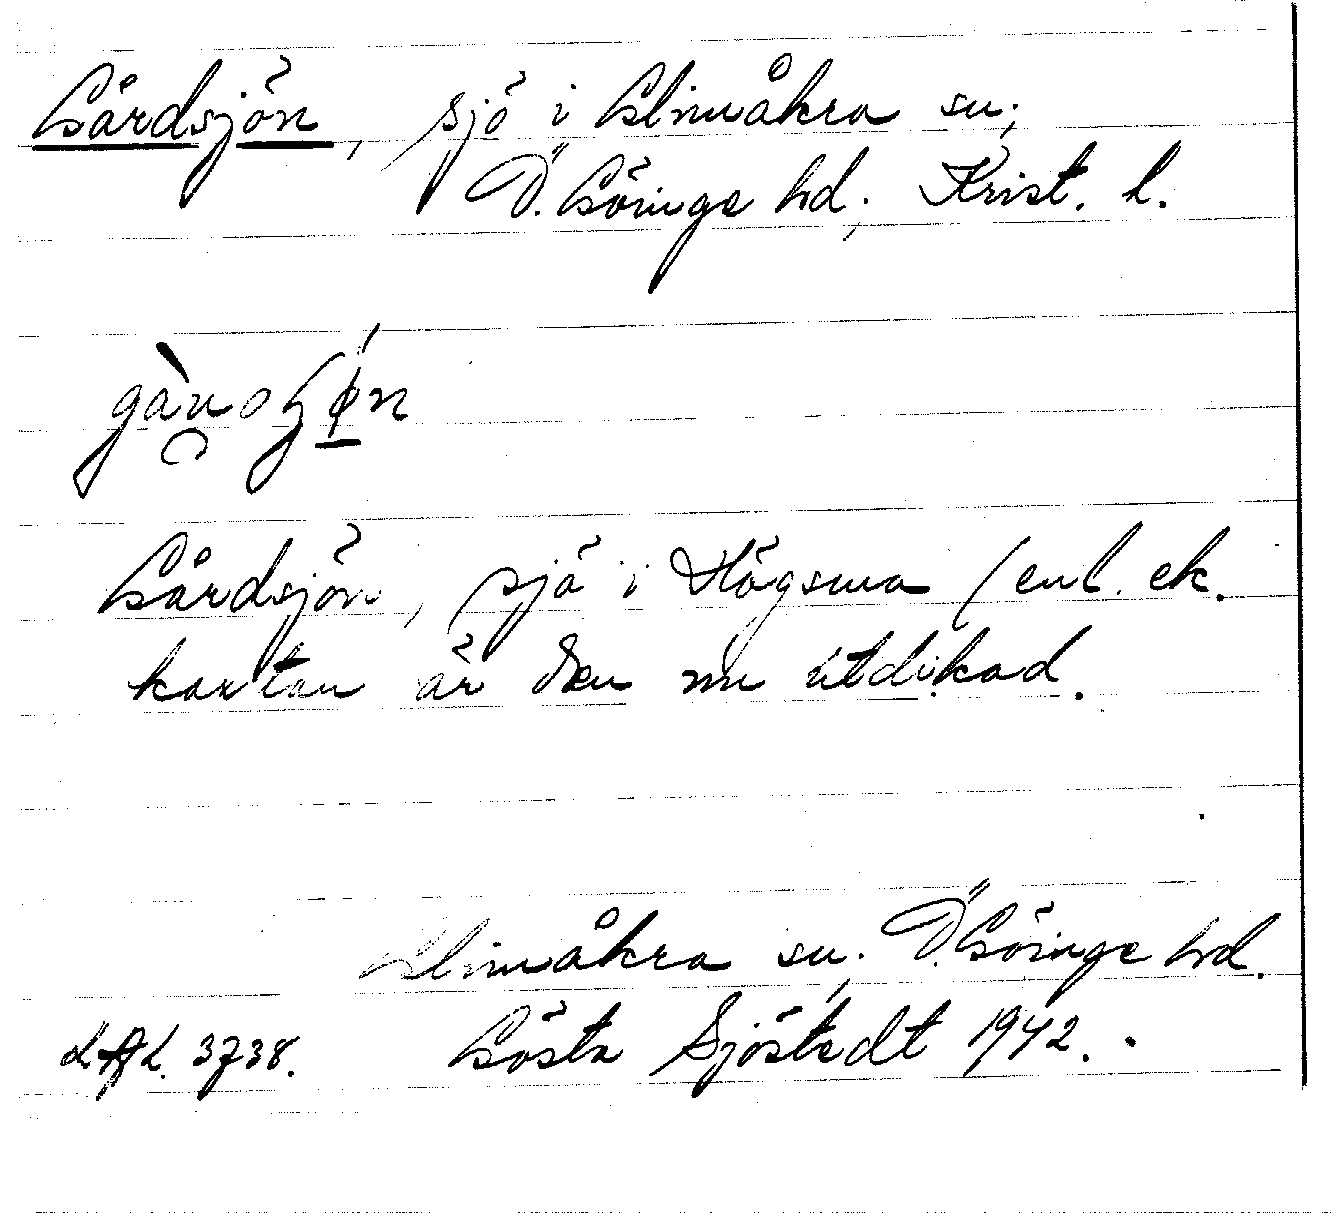 Gårdsjön, sjö i Glimåkra sn,
Ö. Göinge hd. Krist. l.
Gårdsjön, sjö i Högsma (enl. ek.
kartan är den nu utdikad.
Glimåkra sn. Ö. Göinge hd.
3738. Gösta Sjöstedt 1942.